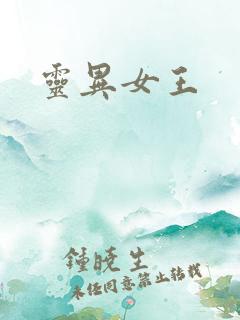 靈異女王
鍾曉生
未經同意禁止轉載